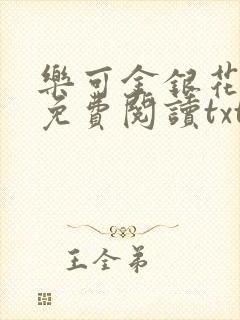 樂可金銀花
免費閱讀txt
王全弟